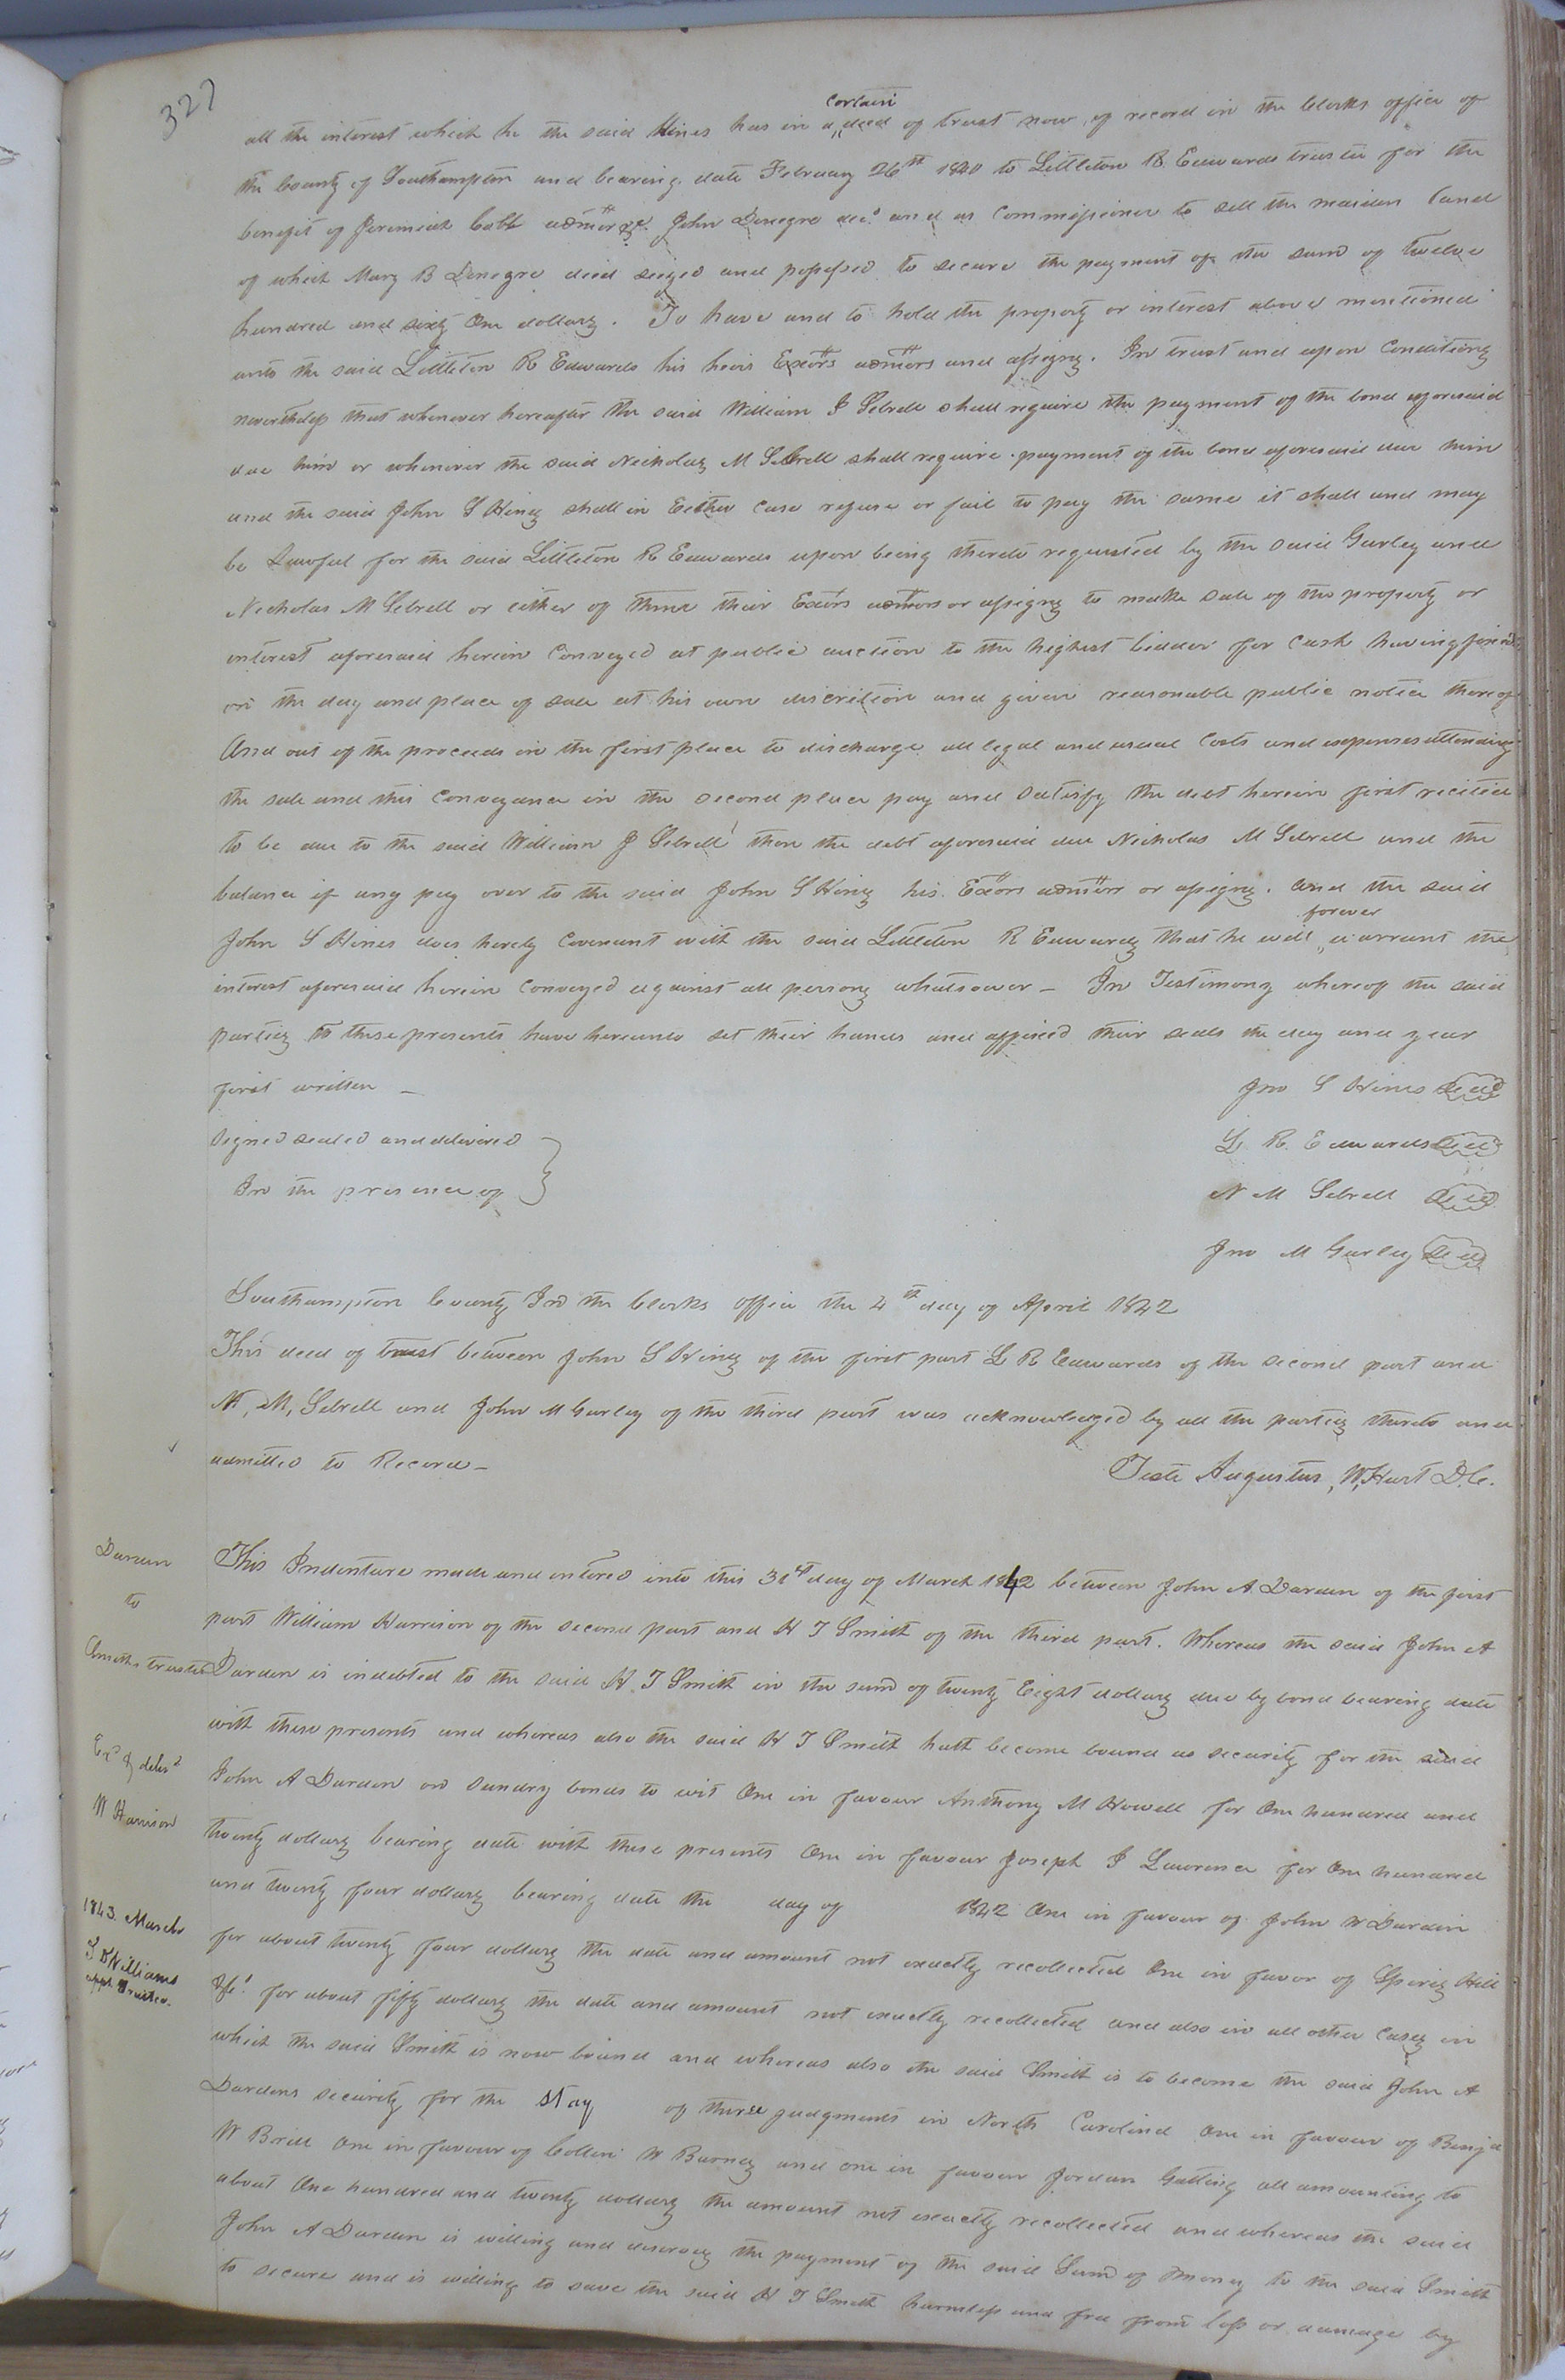 327
certain
all the interest which he the said Hines has in a deed of trust now of record in the Clerks office of
the County of Southampton and bearing date February 26th 1840 to Littleton R Edwards trustee for the
benefit of Jeremiah Cobb admor &c. John Denegre decd and as Commissioner to sell the maiden land
of which Mary B Denegre died seized and possessed to secure the payment of the sum of twelve
hundred and sixty One dollars. To have and to hold the property or interest above mentioned
unto the said Littleton R Edwards his heirs Exors admors and assigns. In trust and upon Conditions
nevertheless that whenever hereafter the said William J Sebrell shall require the payment of the bond aforesaid
due him or whenever the said Nicholas M Sebrell shall require payment of the bond aforesaid due him
and the said John S Hines shall in Either Case refuse or fail to pay the same it shall and may
be Lawful for the said Littleton R Edwards upon being thereto requested by the said Gurley and
Nicholas M Sebrell or either of them their Exors admors or assigns to make sale of the property or
interest aforesaid herein Conveyed at public auction to the highest bidder for Cash having fixed
on the day and place of sale at his own discretion and given reasonable public notice thereof
And out of the proceeds in the first place to discharge all legal and usual Costs and expenses attending
the sale and this Conveyance in the second place pay and satisfy the debt herein first recited
to be due to the said William J Sebrell then the debt aforesaid due Nicholas M Sebrell and the
balance if any pay over to the said John S Hines his Exors admors or assigns. And the said
forever
John S Hines does hereby Covenant with the said Littleton R Edwards that he will warrant the
interest aforesaid herein Conveyed against all persons whatsoever – In Testimony whereof the said
parties to these presents have hereunto set their hands and affixed their seals the day and year
first written –
Jno S Hines Seal
Signed sealed and delivered
L. R. Edwards Seal
In the presence of
N M Sebrell Seal
Jno M Gurley Seal
Southampton County In the Clerks office the 4th day of April 1842
This deed of trust between John S Hines of the first part L R Edwards of the second part and
N, M, Sebrell and John M Gurley of the third part was acknowledged by all the parties thereto and
admitted to Record –
Teste Augustus, W, Hart D.C.
Darden
to
Smiths trustee
Exd & deld
W Harrison
1843. March
Williams
This Indenture made and entered into this 31st day of March 1842 between John A. Darden of the first
part William Harrison of the second part and H T Smith of the third part. Whereas the said John A
Darden is indebted to the said H. T Smith in the sum of twenty Eight dollars due by bond bearing date
with these presents and whereas also the said H T Smith hath become bound as security for the said
John A Darden on sundry bonds to wit One in favour Anthony M Howell for One hundred and
twenty dollars bearing date with these presents One in favour Joseph J Lawrence for One hundred
and twenty four dollars bearing date the day of 1842 One in favour of John W Darden
for about twenty four dollars the date and amount not exactly recollected One in favor of Spirig Hill
for about fifty dollars the date and amount not exactly recollected and also in all other Cases in
which the said Smith is now bound and whereas also the said Smith is to become the said John A
Dardens security for the stay of three judgments in North Carolina One in favour of Benja
W Britt One in favour of Collin W Barnes and one in favour Jordan Gatling all amounting to
about One hundred and twenty dollars the amount not exactly recollected and whereas the said
John A Darden is willing and desirous the payment of the said Sum of money to the said Smith
to secure and is willing to save the said H T Smith harmless and free from loss or damage by